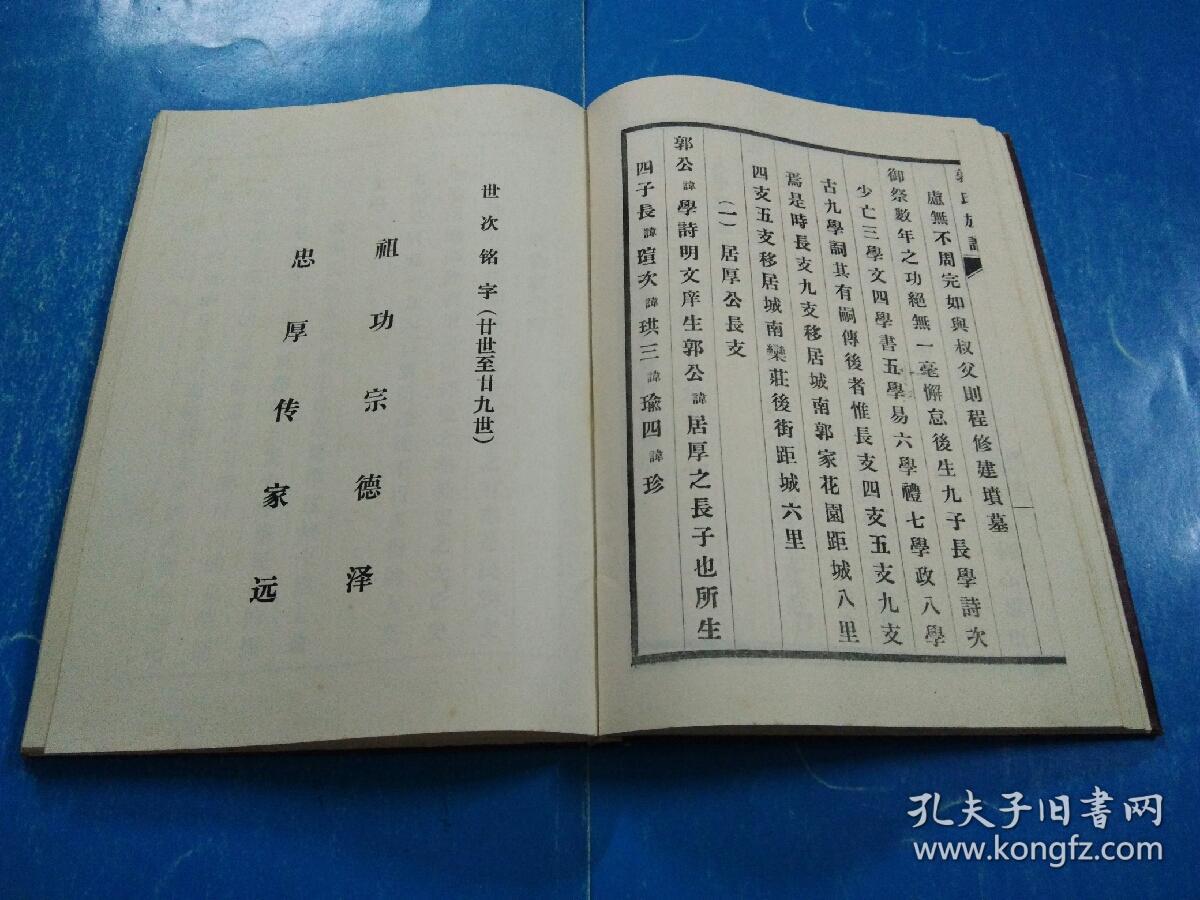 郭氏族譜
慮無不周完如與叔父則程修建墳墓
御祭數年之功絕無一毫懈怠後生九子長學詩次
少亡三學文四學書五學易六學禮七學政八學
古九學詞其有嗣傳後者惟長支四支五支九支
焉是時長支九支移居城南郭家花園距城八里
四支五支移居城南欒莊後街距城六里
（一）居厚公長支
郭公諱學詩明文庠生郭公諱居厚之長子也所生
四子長諱瑄次諱珙三諱瑜四諱珍
世次铭字（廿世至廿九世）
祖功宗德泽
忠厚传家远
孔夫子旧书网
www.kongfz.com